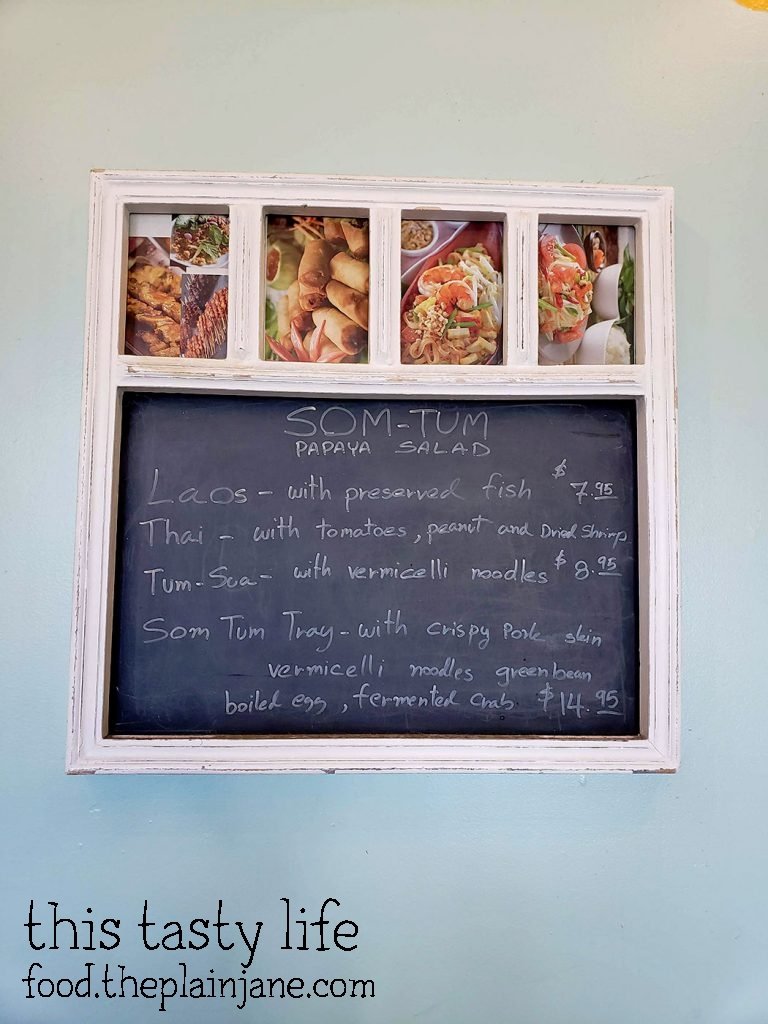 SOM-TUM
PAPAYA SALAD
Laos - with preserved fish $7.95
Thai - with tomatoes, peanut and Dried Shrimp
Tum-Sua - with vermicelli noodles $8.95
Som Tum Tray - with crispy Pork skin
vermicelli noodles greenbean
boiled egg, fermented crab $14.95
this tasty life
food.theplainjane.com